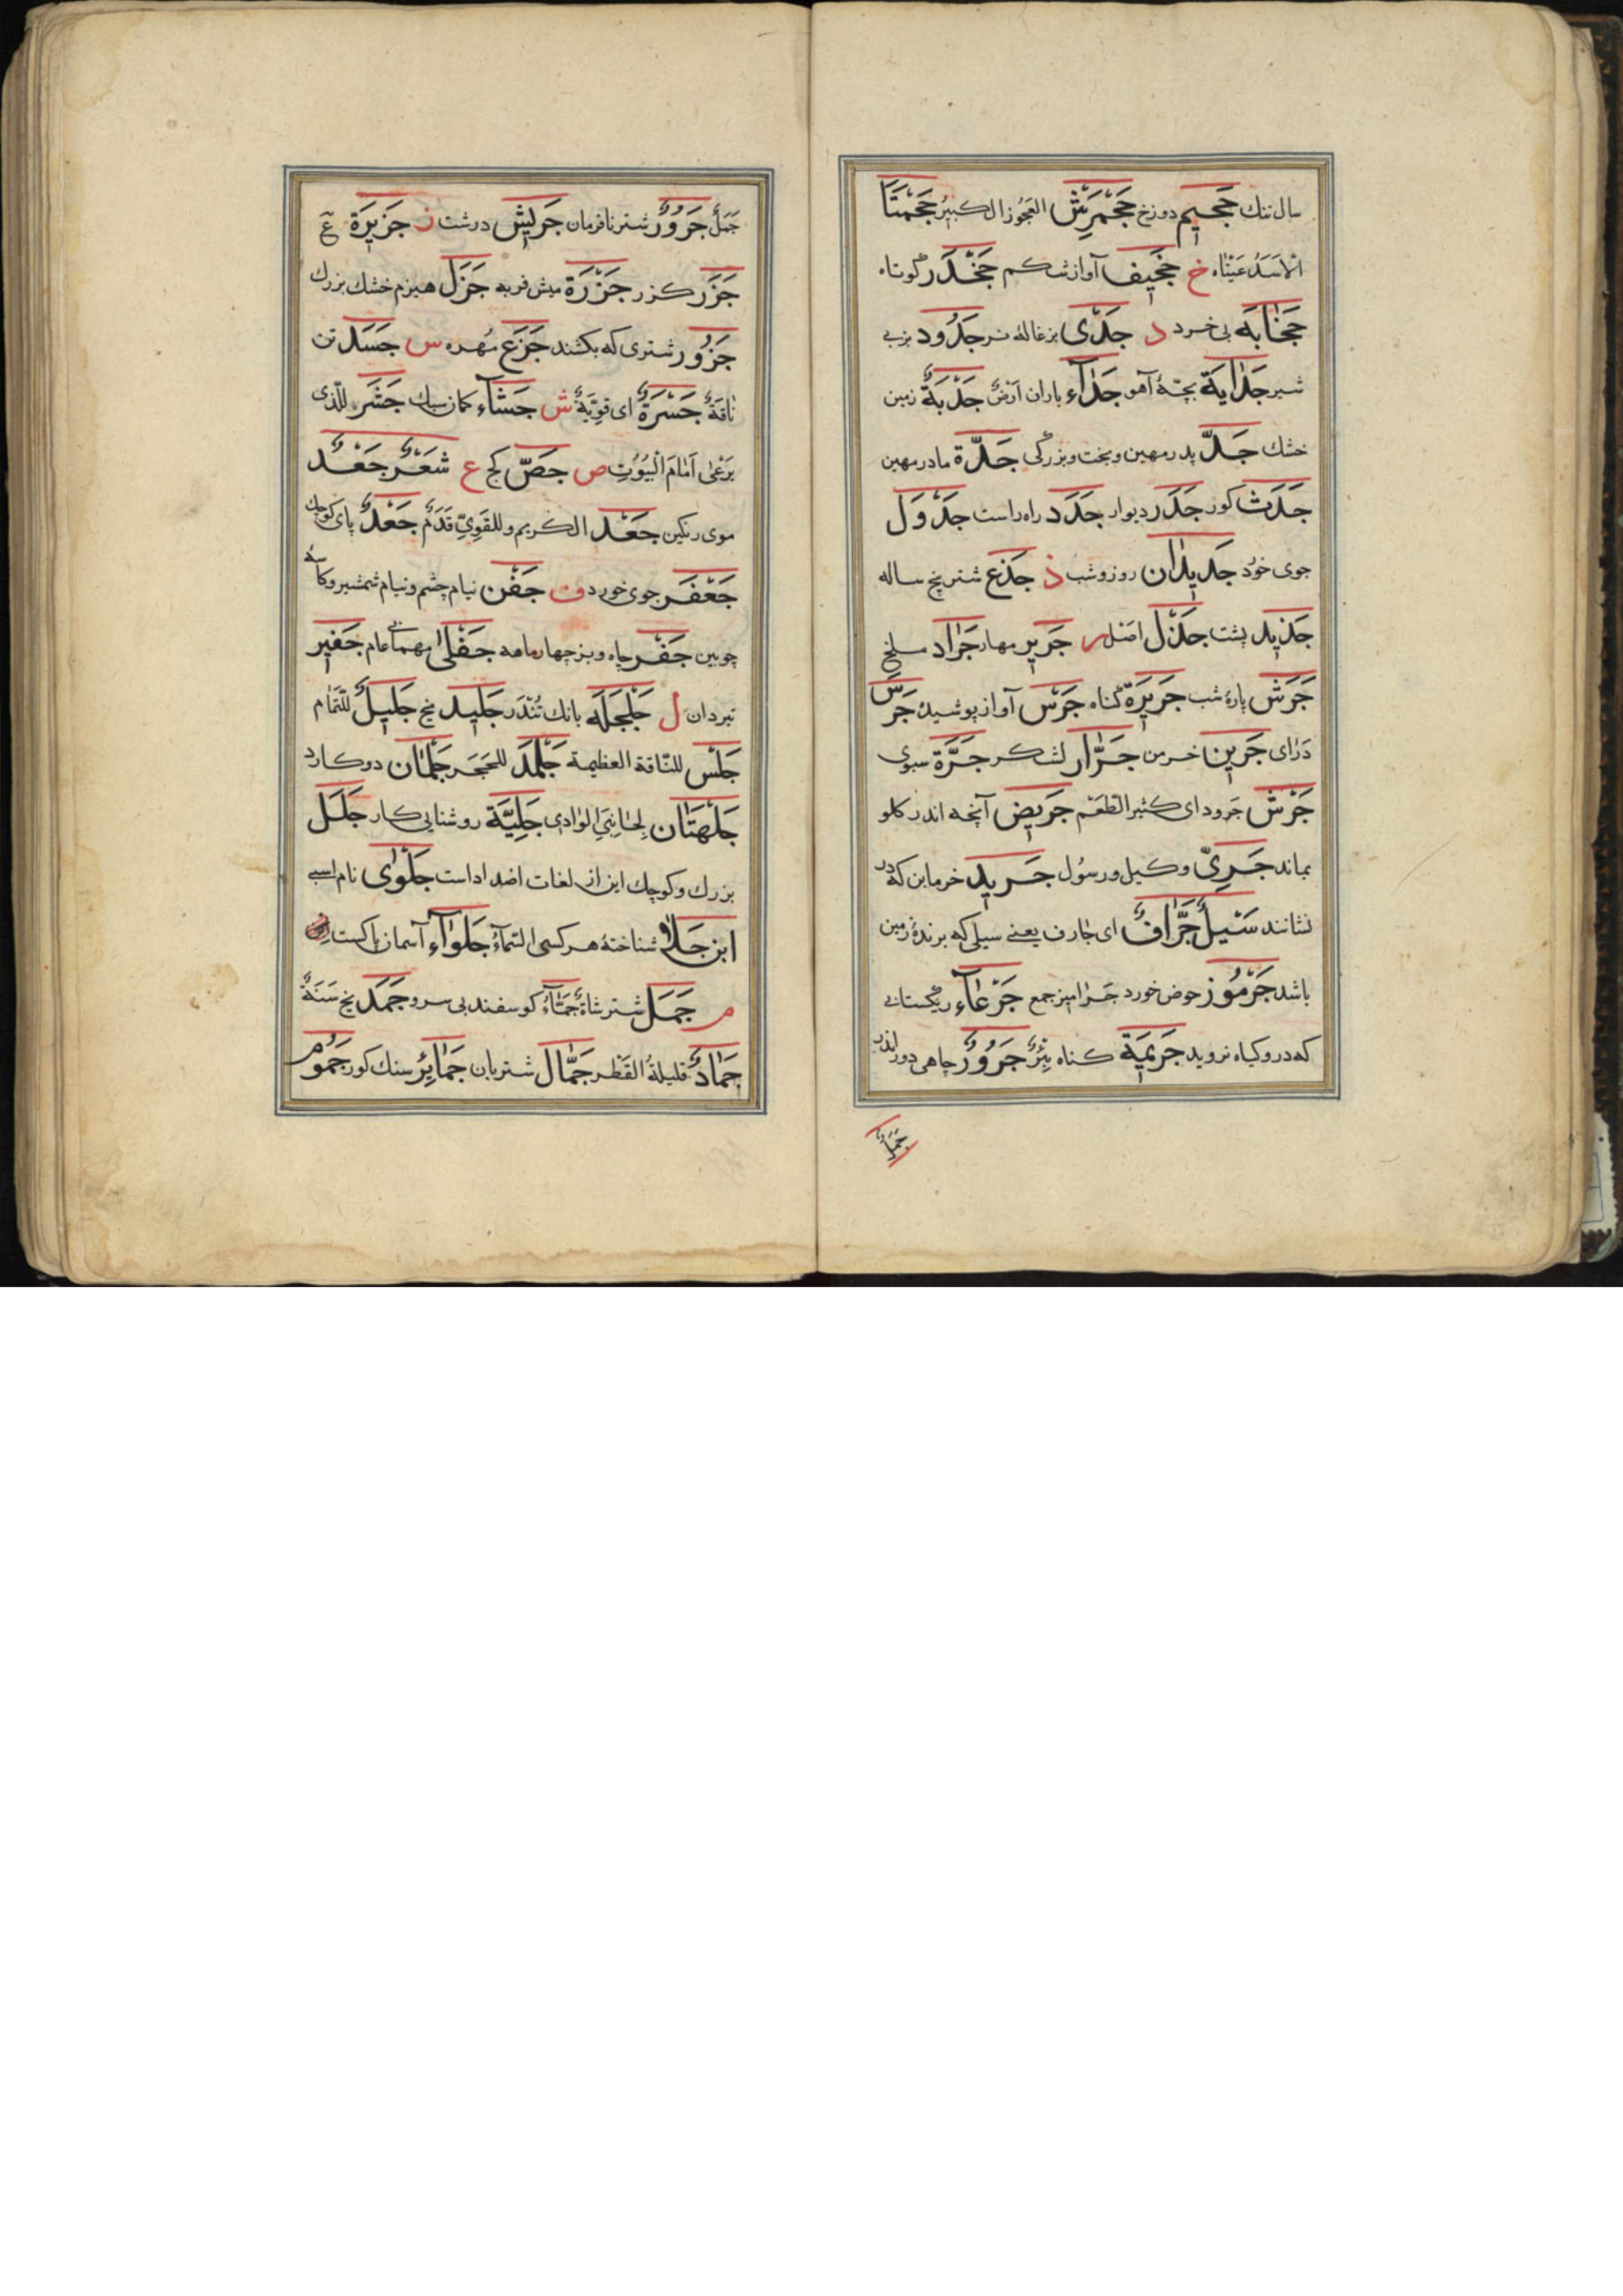 سال تنك جَحيم دوزخ جَحْمَرِش العَجُوز الكبيرُ جَحْمَتَا
الاَسَدُ عَيْنَاه خ جَخيف آواز شكم جَخْدَر كوتاه
جَخَابَه بی خرد د جَدْی بزغالۀ نر جَدُود بز بی
شیر جَدَايَة بچّۀ آهو جَدَآء باران اَرْضٌ جَدْبَةٌ زمین
خشك جَدّ پدر مهین و بخت و بزرگی جَدَّة مادر مهین
جَدَث كور جَدَر دیوار جَدَد راه راست جَدْوَل
جوی خوُد جَديدَان روز و شب ذ جَذَع شتر پنج ساله
جَذيد پشت جَذْل اصل ر جَرير مهار جَرَاد ملخ
جَرَش پارۀ شب جَريرَة گناه جَرْس آواز پوشیده جَرَس
دَرَای جَرين خرمن جَرَّار لشكر جَرَّة سبوی
جَرْش جَرود ای كثير الطَعْم جَريض آنچه اندر كلو
بماند جَرِیّ وكیل و رسُول جَريد خرمابن كه در
نشانند سَيْلٌ جَرَّافٌ ای جَارف یعنی سیلی كه برندۀ زمین
باشد جَرْمُوز حوض خورد جَراميز جمع جَرْعَآء ریگستانی
كه در و كیاه نروید جَريمَة كناه بِئرٌ جَرُورٌ چاهی دور اندر
جَمَلٌ
جَمَلٌ جَرُورٌ شتر نافرمان جَريش درشت ز جَزيرَة عج
جَزَر كزر جَزَرَة میش فربه جَزْل هیزم خشك بزرك
جَزُور شتری كه بكشند جَزَع مُهره س جَسَد تن
نَاقَةٌ جَسْرَةٌ ای قوِيَّةٌ ش جَشَآء كمان سبك جَشَر للّذی
يَرْعَیٰ اَمَامَ الْبُيُوُتِ ص جَصّ كج ع شَعَرٌ جَعْدٌ
موی رنكین جَعْد الكریم و للقَوِیِّ قَدَمٌ جَعْدٌ پای كوچك
جَعْفَر جوی خورد ف جَفْن نیام چشم و نیام شمشیر و كاسه
چوبین جَفْر چاه و بز چهار ماهه جَفَلَیٰ مهمانی عام جَفير
تیردان ل جَلْجَلَه بانك تُنْدَر جَليد یخ جَليلٌ للثّمَام
جَلْس للنّاقة العظيمة جَلْمَد للحَجَر جَلَمَان دو كارد
جَلْهَتَان لِجَانِبَیِ الوَادِی جَلِيَّة روشنایی كار جَلَل
بزرك و كوچك این از لغات اضداد است جَلْوَی نام اسبی
ابن جَلَا شناختۀ هر كسی السّمآءُ جَلوَآء آسمان پاكست
م جَمَل شتر شاةٌ جَمَّآءُ كوسفند بی سرو جَمَد یخ سَنَةٌ
جَمَادٌ قليلةُ القَطْر جَمَّال شتربان جَمَائِرُ سنك كور جَمُوم